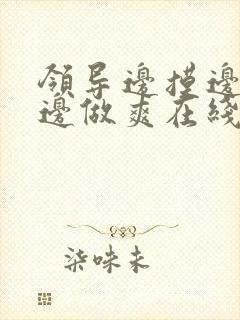 領导邊摸邊
邊做爽在綫
柒味未